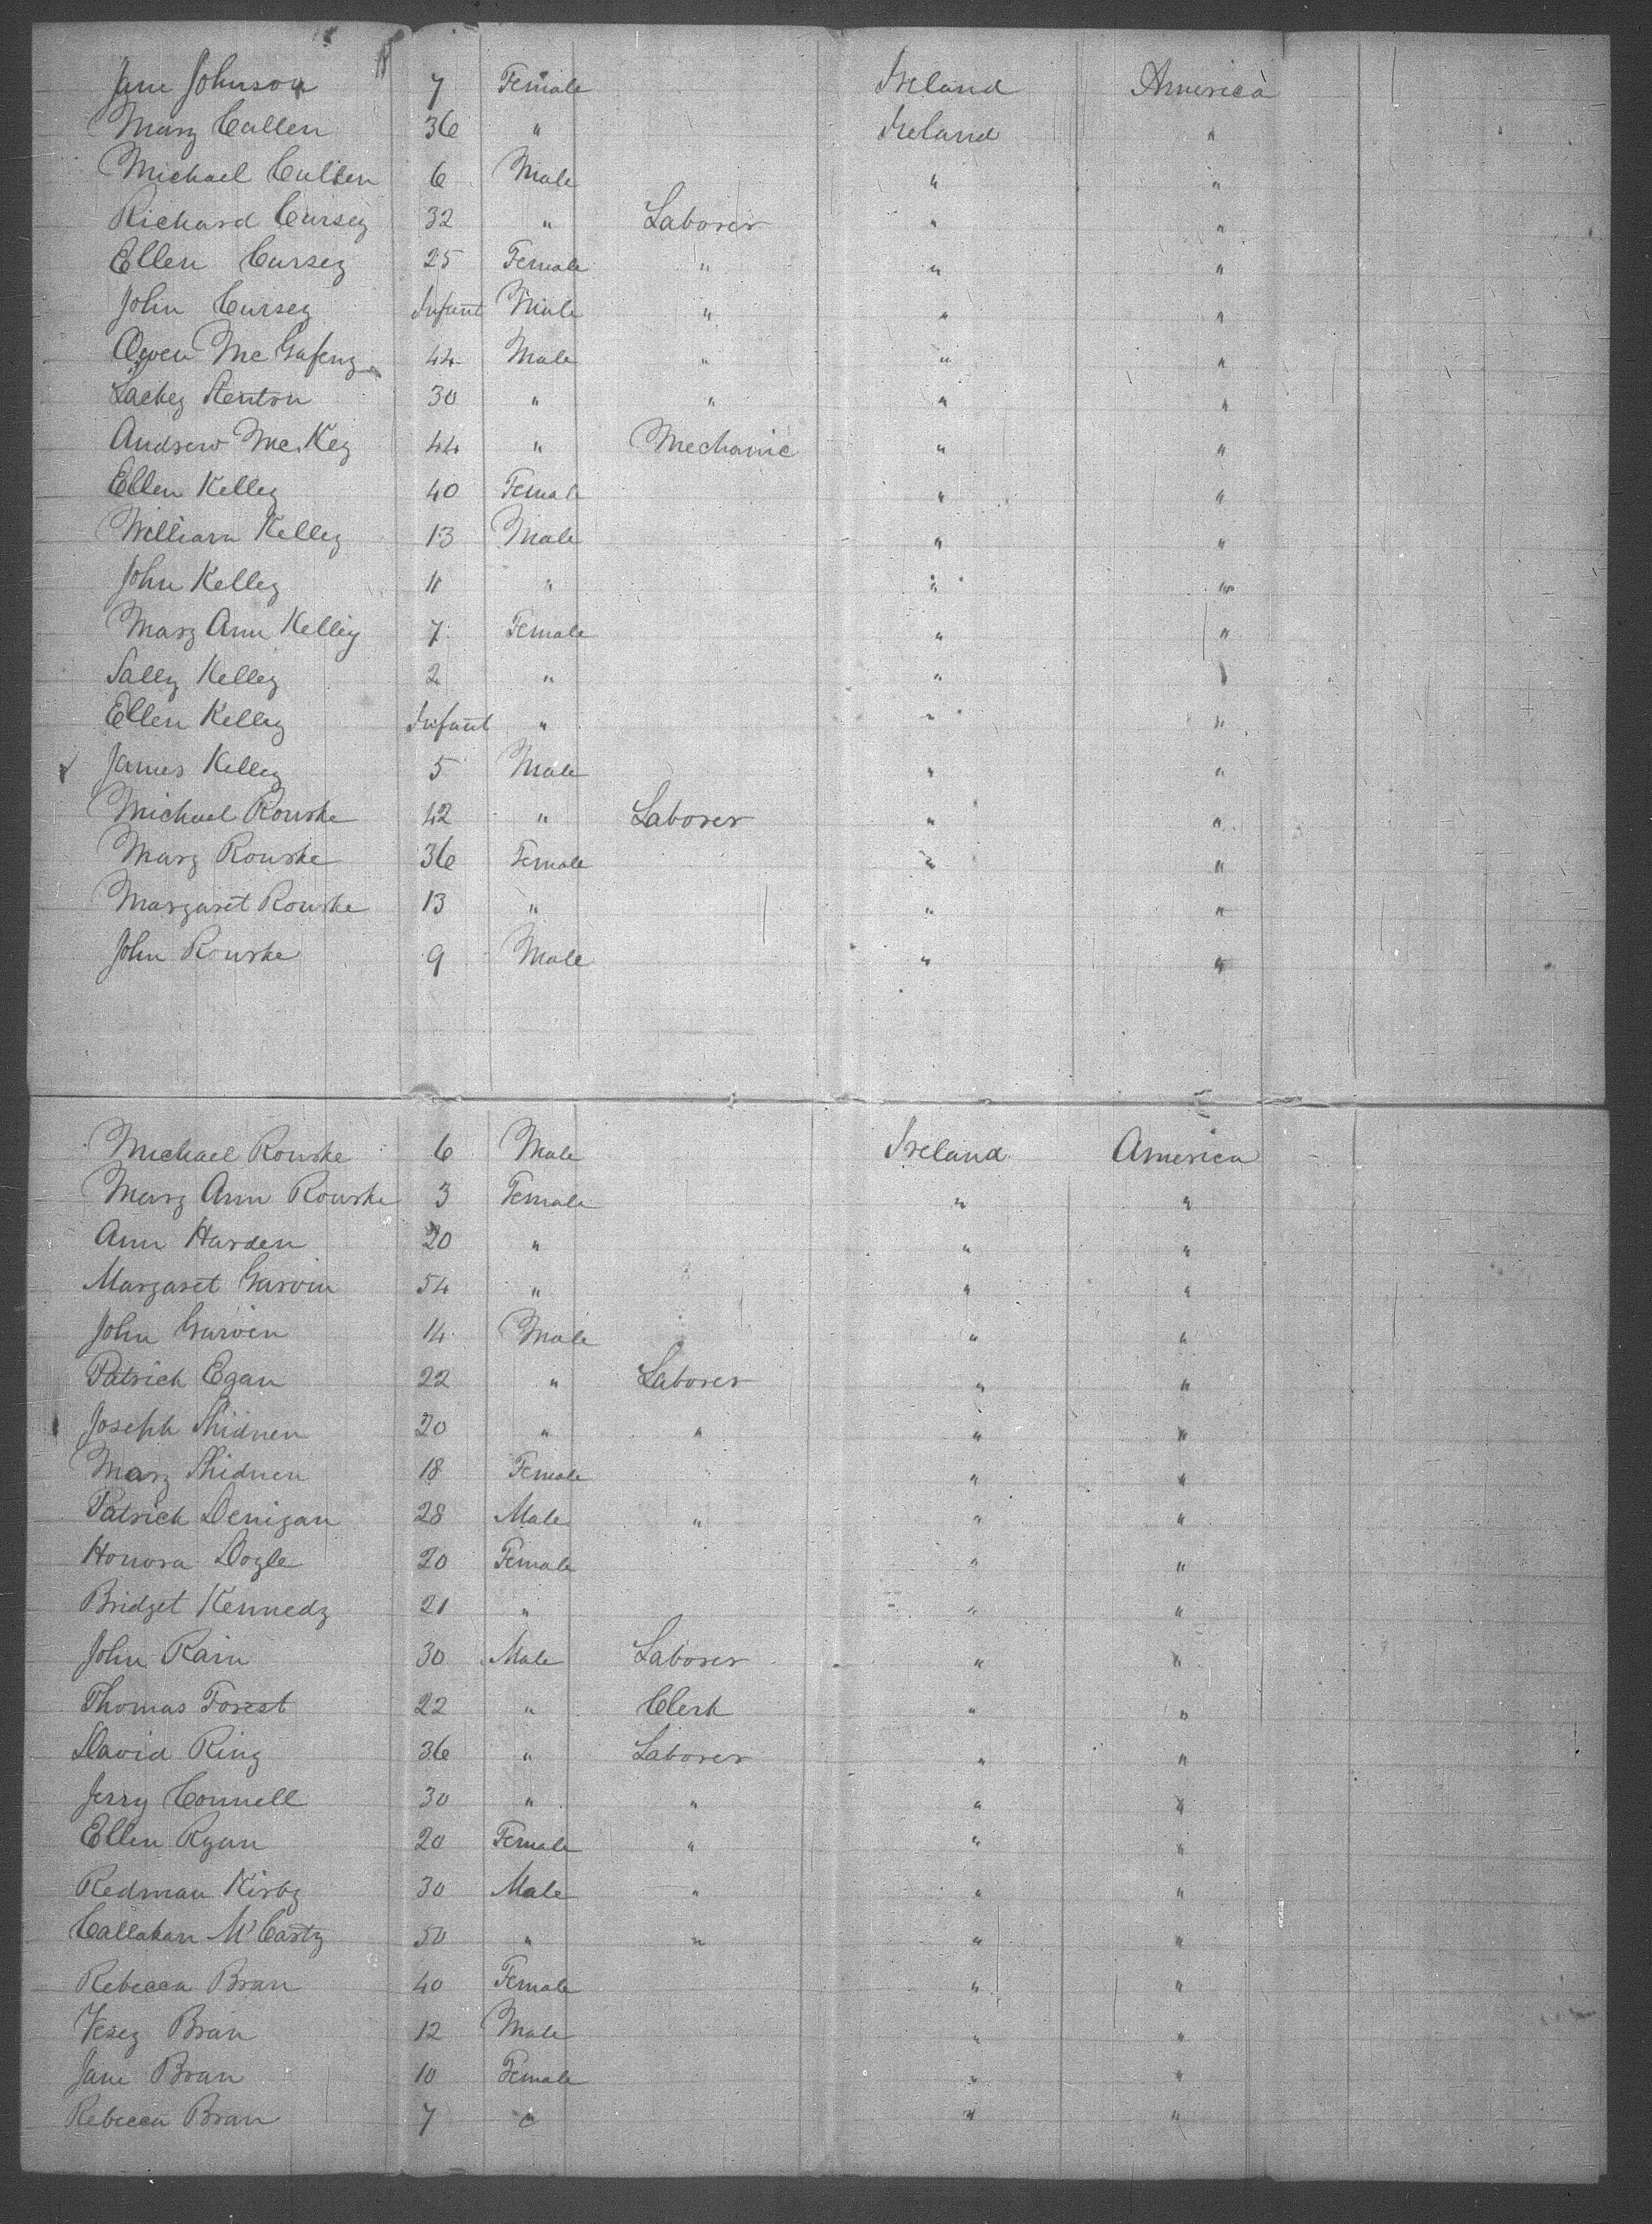 Jane Johnson 7 Female Ireland America
Mary Cullen 36 " Ireland "
Michael Cullen 6 Male " "
Richard Cursey 32 " Laborer " "
Ellen Cursey 25 Female " " "
John Cursey Infant Male " " "
Owen Mc Gafeny 44 Male " " "
Lackey Stenton 30 " " " "
Andrew McKey 44 " Mechanic " "
Ellen Kelley 40 Female " "
William Kelley 13 Male " "
John Kelley 11 " " "
Mary Ann Kelley 7 Female " "
Sally Kelley 2 " " "
Ellen Kelley Infant " " "
James Kelley 5 Male " "
Michael Rourke 42 " Laborer " "
Mary Rourke 36 Female " "
Margaret Rourke 13 " " "
John Rourke 9 Male " "
Michael Rourke 6 Male Ireland America
Mary Ann Rourke 3 Female " "
Ann Harden 20 " " "
Margaret Garvin 54 " " "
John Garven 14 Male " "
Patrick Egan 22 " Laborer " "
Joseph Shidnen 20 " " " "
Mary Shidnen 18 Female " "
Patrick Denigan 28 Male " " "
Honora Dogle 20 Female " "
Bridget Kennedy 21 " " "
John Rain 30 Male Laborer " "
Thomas Forest 22 " Clerk " "
David Ring 36 " Laborer " "
Jerry Connell 30 " " " "
Ellen Ryan 20 Female " " "
Redman Kirby 30 Male " " "
Callahan McCarty 50 " " " "
Rebecca Bran 40 Female " "
Vesey Bran 12 Male " "
Jane Bran 10 Female " "
Rebecca Bran 7 " " "